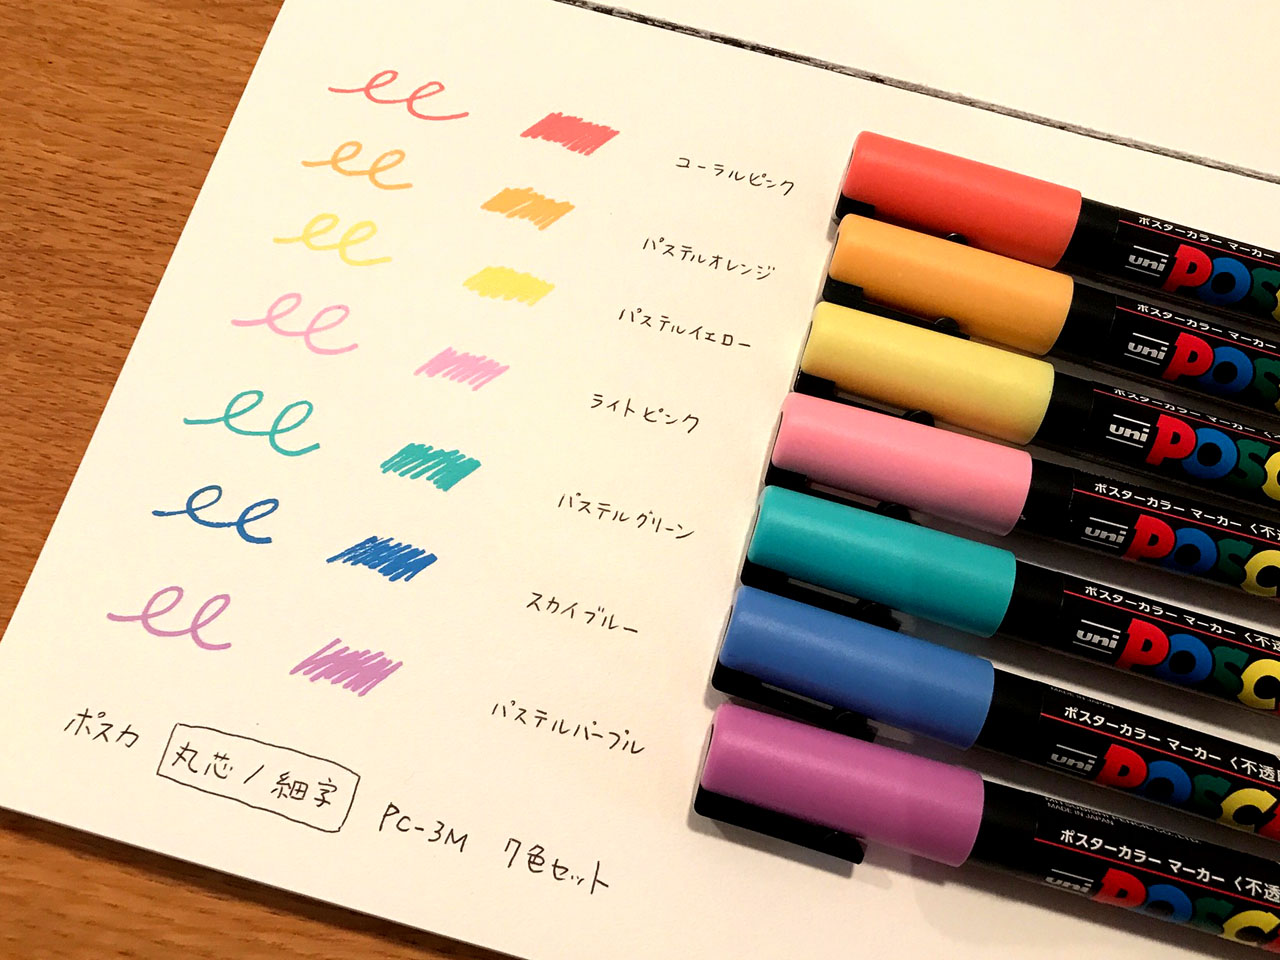 コーラルピンク
パステルオレンジ
パステルイエロー
ライトピンク
パステルグリーン
スカイブルー
パステルパープル
ポスカ 丸芯/細字 PC-3M 7色セット
ポスターカラー マーカー
uni POSC
ポスターカラー マーカー
uni POSC
ポスターカラー マーカー
uni POSC
ポスターカラー マーカー〈不透
uni POSC
ポスターカラー マーカー〈不透
uni POSC
MADE IN JAPAN
ポスターカラー マーカー〈不透
uni POSC
MADE IN JAPAN
ポスターカラー マーカー〈不透
uni POSC